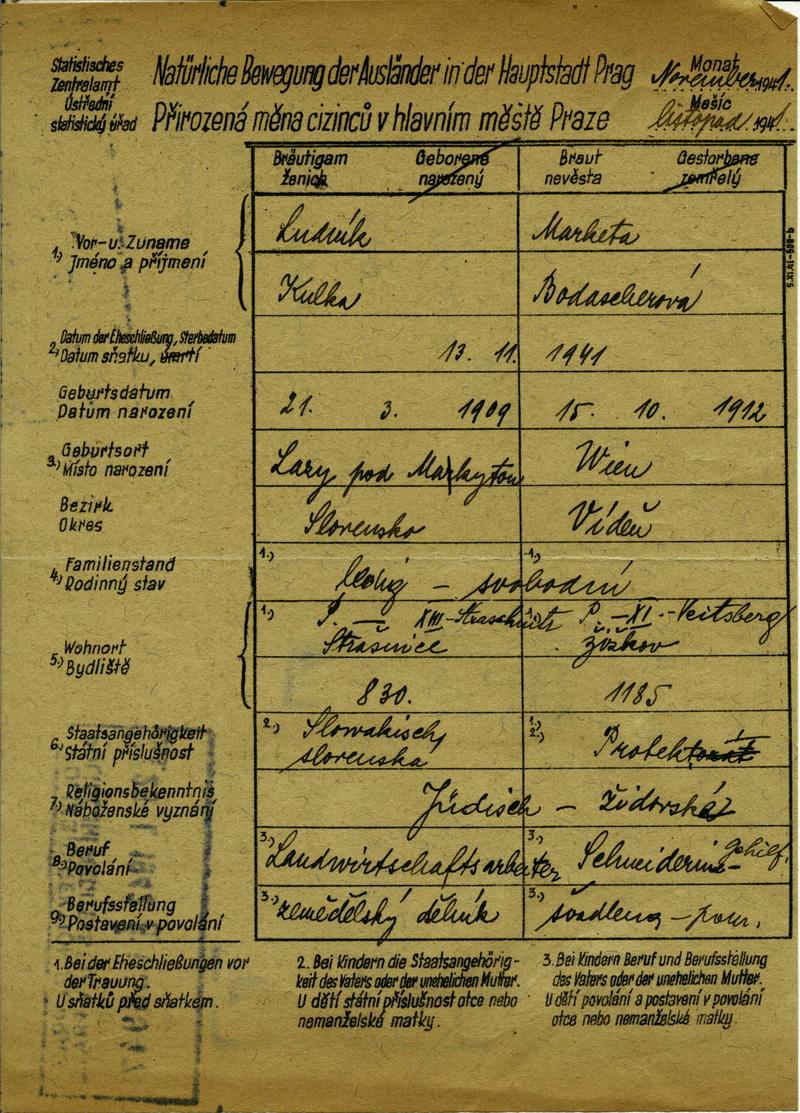 Statistisches
Zentralamt
Ústřední
statistický úřad
Natürliche Bewegung der Ausländer in der Hauptstadt Prag
Přirozená měna cizinců v hlavním městě Praze
Monat
November 1941.
Měsíc
listopad 1941.
Bräutigam Geborene Braut Gestorbene
ženich narozený nevěsta zemřelý
S.XI.41-500-b
1.) Vor- u. Zuname
Jméno a příjmení
Ludvík Marketa
Kulka Bodascherová
2.) Datum der Eheschließung, Sterbedatum
Datum sňatku, úmrtí
13. 11. 1941
Geburtsdatum
Datum narození
21. 3. 1909 15. 10. 1912
3.) Geburtsort
Místo narození
Lazy pod Wien
Bezirk
Okres
Slovensko Vídeň
4.) Familienstand
Rodinný stav
1.) ledig – svobodní 1.)
5.) Wohnort
Bydliště
1.) P. — XIII - Straschnitz P. – XI. - Veitsberg
Strašnice Žižkov
830. 1185
6.) Staatsangehörigkeit
Státní příslušnost
2.) Slowakisch 1.) 2.) Protektorát
slovenska
7.) Religionsbekenntnis
Náboženské vyznání
Jüdisch – židovské
8.) Beruf
Povolání
3.) Landwirtschaftsarbeiter 3.) Schneiderin- Gehilf.
9.) Berufsstellung
Postavení v povolání
3.) zemědělský dělník 3.) švadlena – pom.
1. Bei der Eheschließungen vor
der Trauung.
U sňatků před sňatkem.
2. Bei Kindern die Staatsangehörig-
keit des Vaters oder der unehelichen Mutter.
U dětí státní příslušnost otce nebo
nemanželské matky.
3. Bei Kindern Beruf und Berufsstellung
des Vaters oder der unehelichen Mutter.
U dětí povolání a postavení v povolání
otce nebo nemanželské matky.